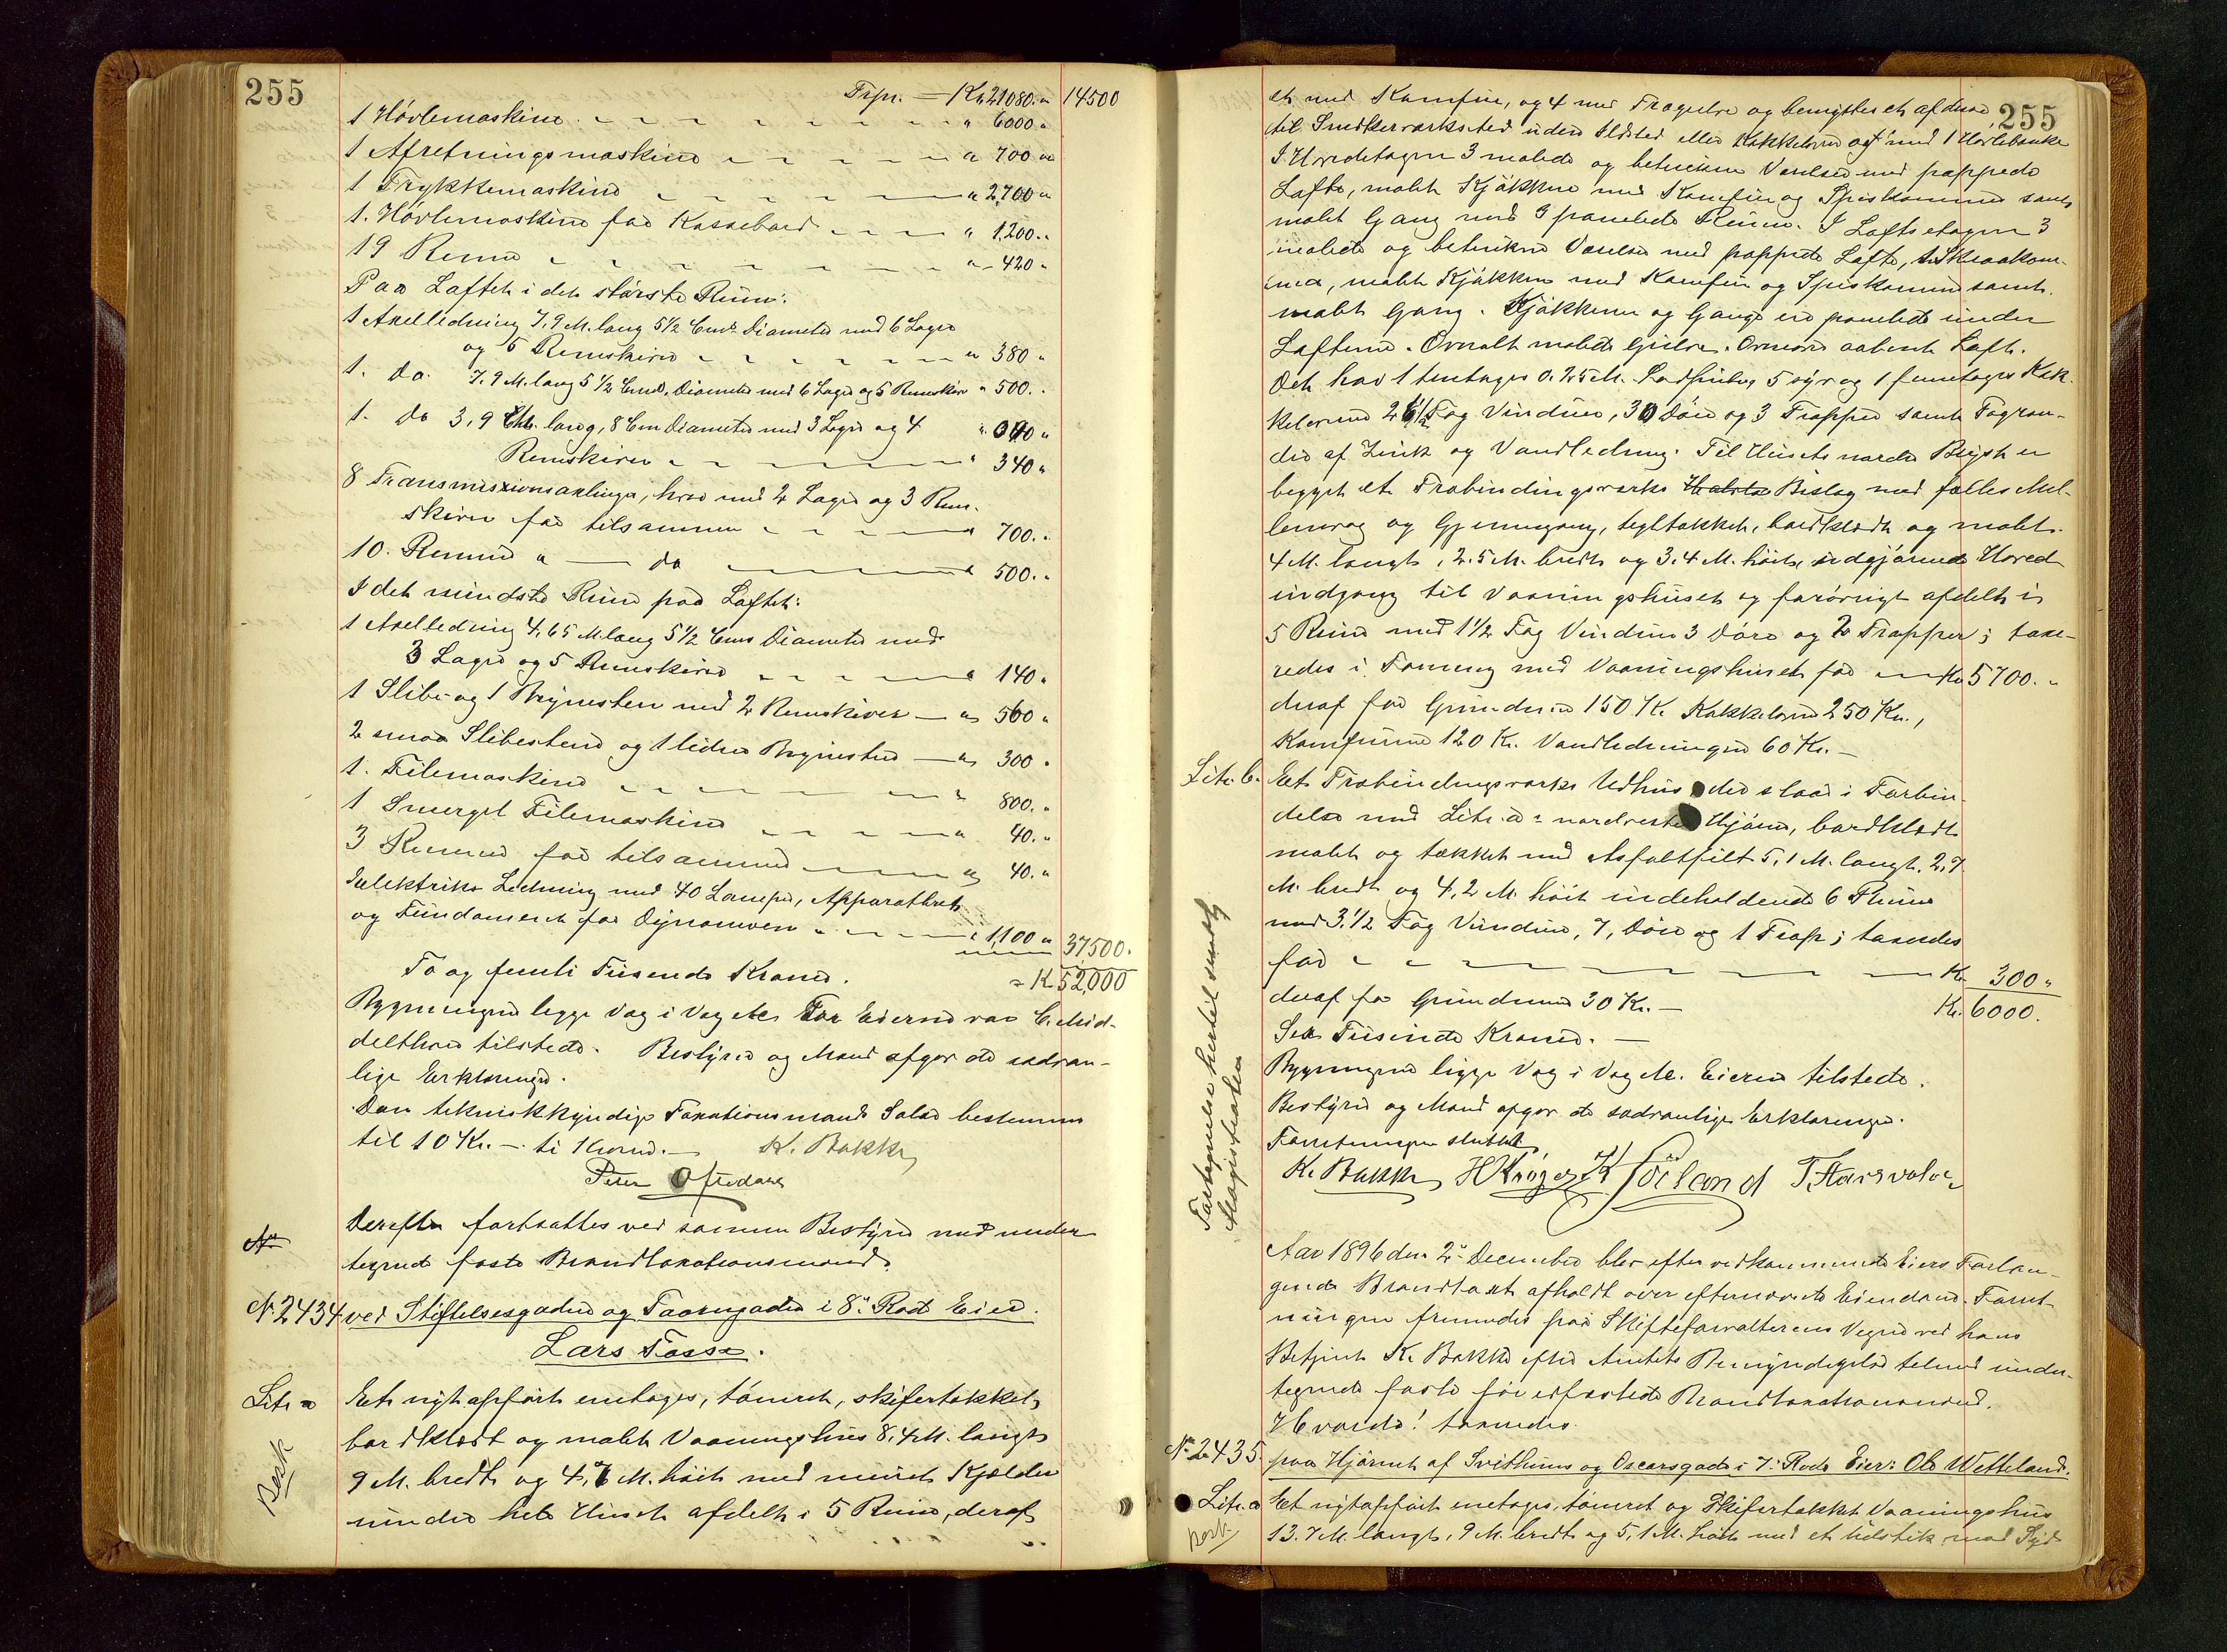 255
Trpr. — Kr 21080. " 14500
1 Hövlemaskine " 6000 "
1 Afretningsmaskine " 700 "
1 Trykkemaskine " 2,700 "
1. Hövlemaskine for Kassebord " 1,200 "
19 Remme " 420 "
Paa Loftet i det störste Rum:
1 Axelledning 7,9 M. lang 5½ Cm. Diameter med 6 Lagre
og 5 Remskiver " 380 "
1. do. 7,9 M. lang 5½ Cm. Diameter med 6 Lagre og 5 Remskiver " 500. "
1. do 3,9 M. lang, 8 Cm Diameter med 3 Lagre og 4
Remskiver " 340 "
8 Transmissionsaxlinger, hver med 2 Lagre og 3 Rem-
skiver for tilsammen " 700. "
10. Remme " — do " 500. "
I det mindste Rum paa Loftet:
1 Axelledning 4,65 M lang 5½ Cm Diameter med
3 Lagre og 5 Remskiver " 140 "
1 Slibe- og 1 Brynesten med 2 Remskiver — " 560 "
2 smaa Slibestene og 1 liden Brynesten — " 300 "
1. Filemaskine " 800. "
1 Smergel Filemaskine " 40. "
3 Remme for tilsammen " 40. "
Elektriske Ledning med 40 Lamper, Apparatbret
og Fundament for Dynamoen " 1,100 " 37,500.
To og femti Tusende Kroner. = Kr 52,000
Bygningen ligge Vag i Vag Al. For Eierne var C. Mid-
delthon tilstede. Bestyrer og Mænd afgav de sædvan-
lige Erklæringer.
Den tekniskkyndige Taxationsmands Salær bestemmes
til 10 Kr. — ti Kroner. — K. Bakke
Peter Oftedahl
Derefter fortsattes ved samme Bestyrer med under-
tegnede faste Brandtaxationsmænd.
No 2434 ved Stiftelsesgaden og Taarngaden i 8de Rode Eier:
Lars Fosse.
Litr. a Et nyt opfört enetages, tömret, skifertækket,
bordklædt og malet Vaaningshus 8,4 M. langt
9 M. bredt og 4,7 M. höit med muret Kjælder
under hele Huset afdelt i 5 Rum, deraf
Besk
255
et med Komfur, og 4 med Trægulve og benyttes et af disse
til Snedkerværksted uden Ildsted eller Kakkelovn og med 1 Hövlebænke
I Hovedetagen 3 malede og betrukne Værelser med pappede
Lofte, malet Kjökken med Komfur og Spiskammer samt
malet Gang med 9 panelede Rum. I Loftsetagen 3
malede og betrukne Værelser med pappede Lofte, 1 Skraakam-
mer, malet Kjökken med Komfur og Spiskammer samt
malet Gang. Kjökkener og Gange ere panelede under
Lofterne. Overalt malede Gulve. Överst aabent Loft.
Det har 1 tentages 0.25 M. Lodpibe, 5 syv og 1 femetages Kak-
kelovne 26½ Fag Vinduer, 30 Döre og 3 Trapper samt Tagren-
der af Zink og Vandledning. Til Husets nordre Bryst er
bygget et Træbindingsværks Bislag med fælles Mel-
lemvæg og Gjennemgang, tegltækket, bordklædt og malet
4 M. langt, 2.5 M. bredt og 3.4 M. höit, udgjörende Hoved-
indgang til Vaaningshuset og forövrigt afdelt i
5 Rum med 1½ Fag Vinduer 3 Döre og 2 Trapper; taxe-
redes i Forening med Vaaningshuset for — Kr 5700. "
deraf for Grunden 150 Kr. Kakkelovne 250 Kr.,
Komfurene 120 Kr. Vandledningen 60 Kr. —
Litr. b. Et Træbindingsværks Udhus der staar i Forbin-
delse med Litr. a's nordvestre Hjörne, bordklædt
malet og tækket med Asfaltfilt 5,1 M. langt, 2,7
M. bredt og 4,2 M. höit indeholdende 6 Rum
med 3½ Fag Vinduer, 7 Döre og 1 Trap; taxeredes
for Kr. 300 "
deraf for Grundmur 30 Kr. — Kr. 6000.
Sex Tusinde Kroner. —
Bygningen ligge Vag i Vag Al. Eieren tilstede.
Bestyrer og Mænd afgav de sædvanlige Erklæringer.
Forretningen sluttet
K. Bakke
Fortegnelse hertil sendt
Magistraten
Aar 1896 den 2den December blev efter vedkommende Eiers Forlan-
gende Brandtaxt afholdt over efternævnte Eiendomme. Forret-
ningen fremmedes paa Skifteforvalterens Vegne ved hans
Betjent K. Bakke efter Amtets Bemyndigelse tilligemed under-
tegnede faste edfæstede Brandtaxationsmænd.
Hvorda! taxeredes.
No 2435. paa Hjörnet af Svithuns og Oscarsgade i 7. Rode Eier: Ole Wetteland.
Litr. a Et nytopfört enetages, tömret og Skifertækket Vaaningshus
13.7 M. langt, 9 M. bredt og 5,1 M. höit med et Udstik mod Syd
Besk.